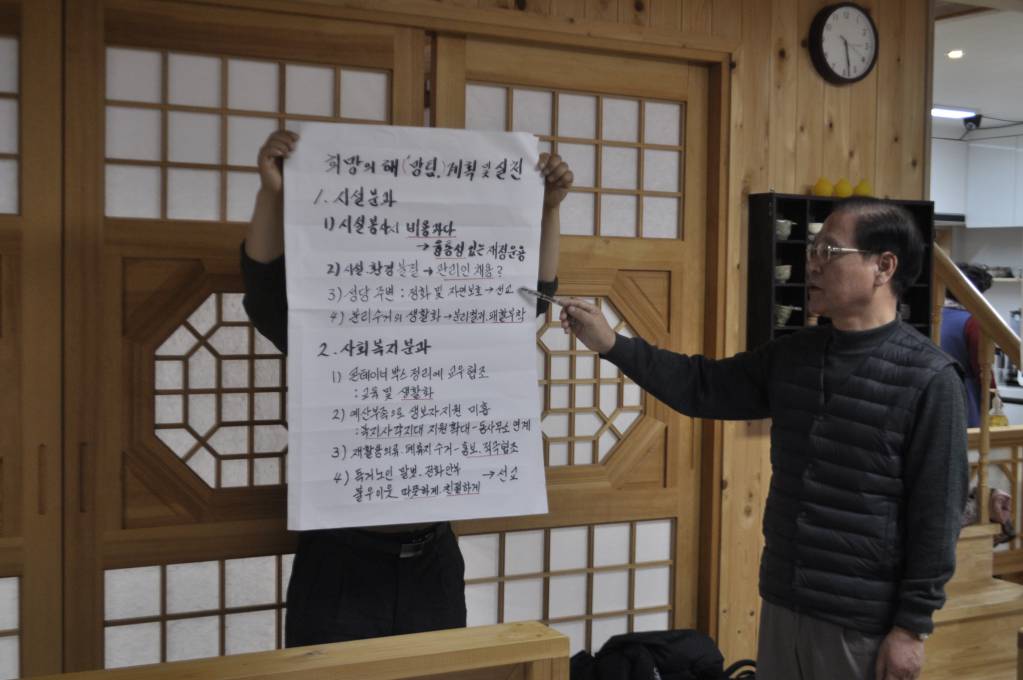 희망의 해(방팀) 계획 및 실진
1. 시설분과
1) 시설봉사시 비용과다
→ 융통성 없는 재정운용
2) 시설.환경 불결 → 관리인 채용?
3) 성당 주변 : 정화 및 자연보호 → 선교
4) 분리수거의 생활화 → 분리철저.재활부착
2. 사회복지분과
1) 콘테이너 박스 정리에 교우협조
: 교육 및 생활화
2) 예산부족으로 생보자지원 미흡
: 복지사각지대 지원확대 - 동사무소 연계
3) 재활용의류.폐휴지 수거 - 홍보.적극협조
4) 독거노인 말보.전화안부 → 선교
불우이웃 따뜻하게.친절하게